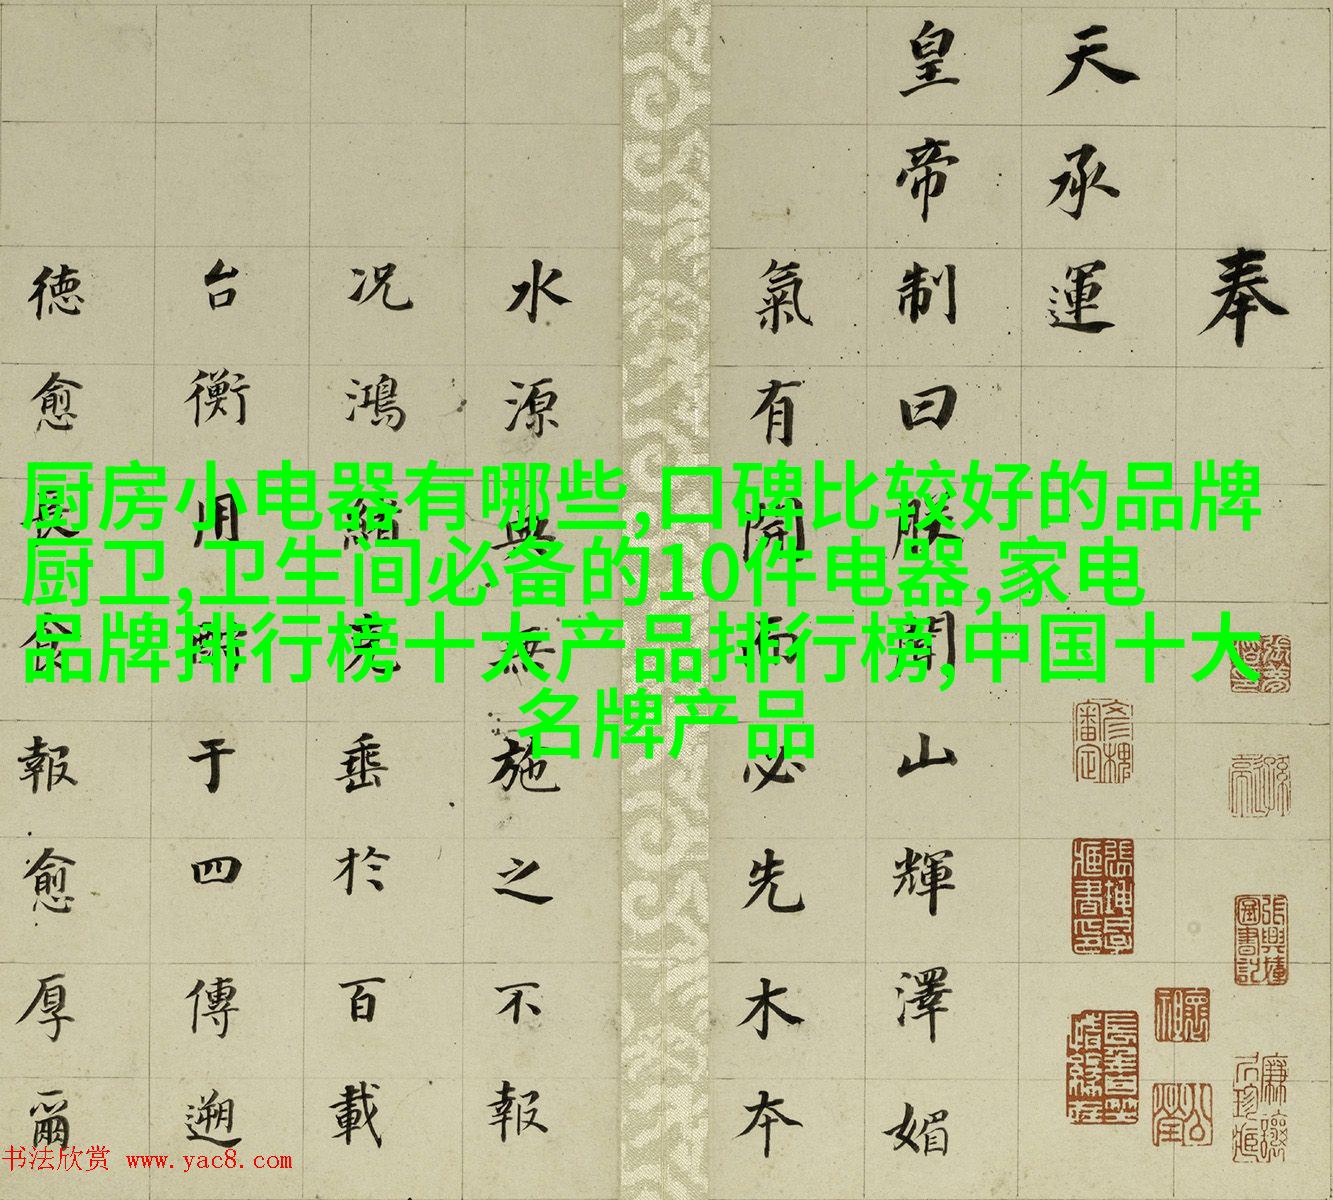 奉
天承運
皇帝制曰朕聞山輝澤媚
氣有開而必先木本
水源典無施之不報
況鴻緒克垂於百載
台衡用酬于四傳遡
德愈長食報愈厚爾
厨房小电器有哪些,口碑比较好的品牌
厨卫,卫生间必备的10件电器,家电
品牌排行榜十大产品排行榜,中国十大
名牌产品
书法欣赏 www.yac8.com